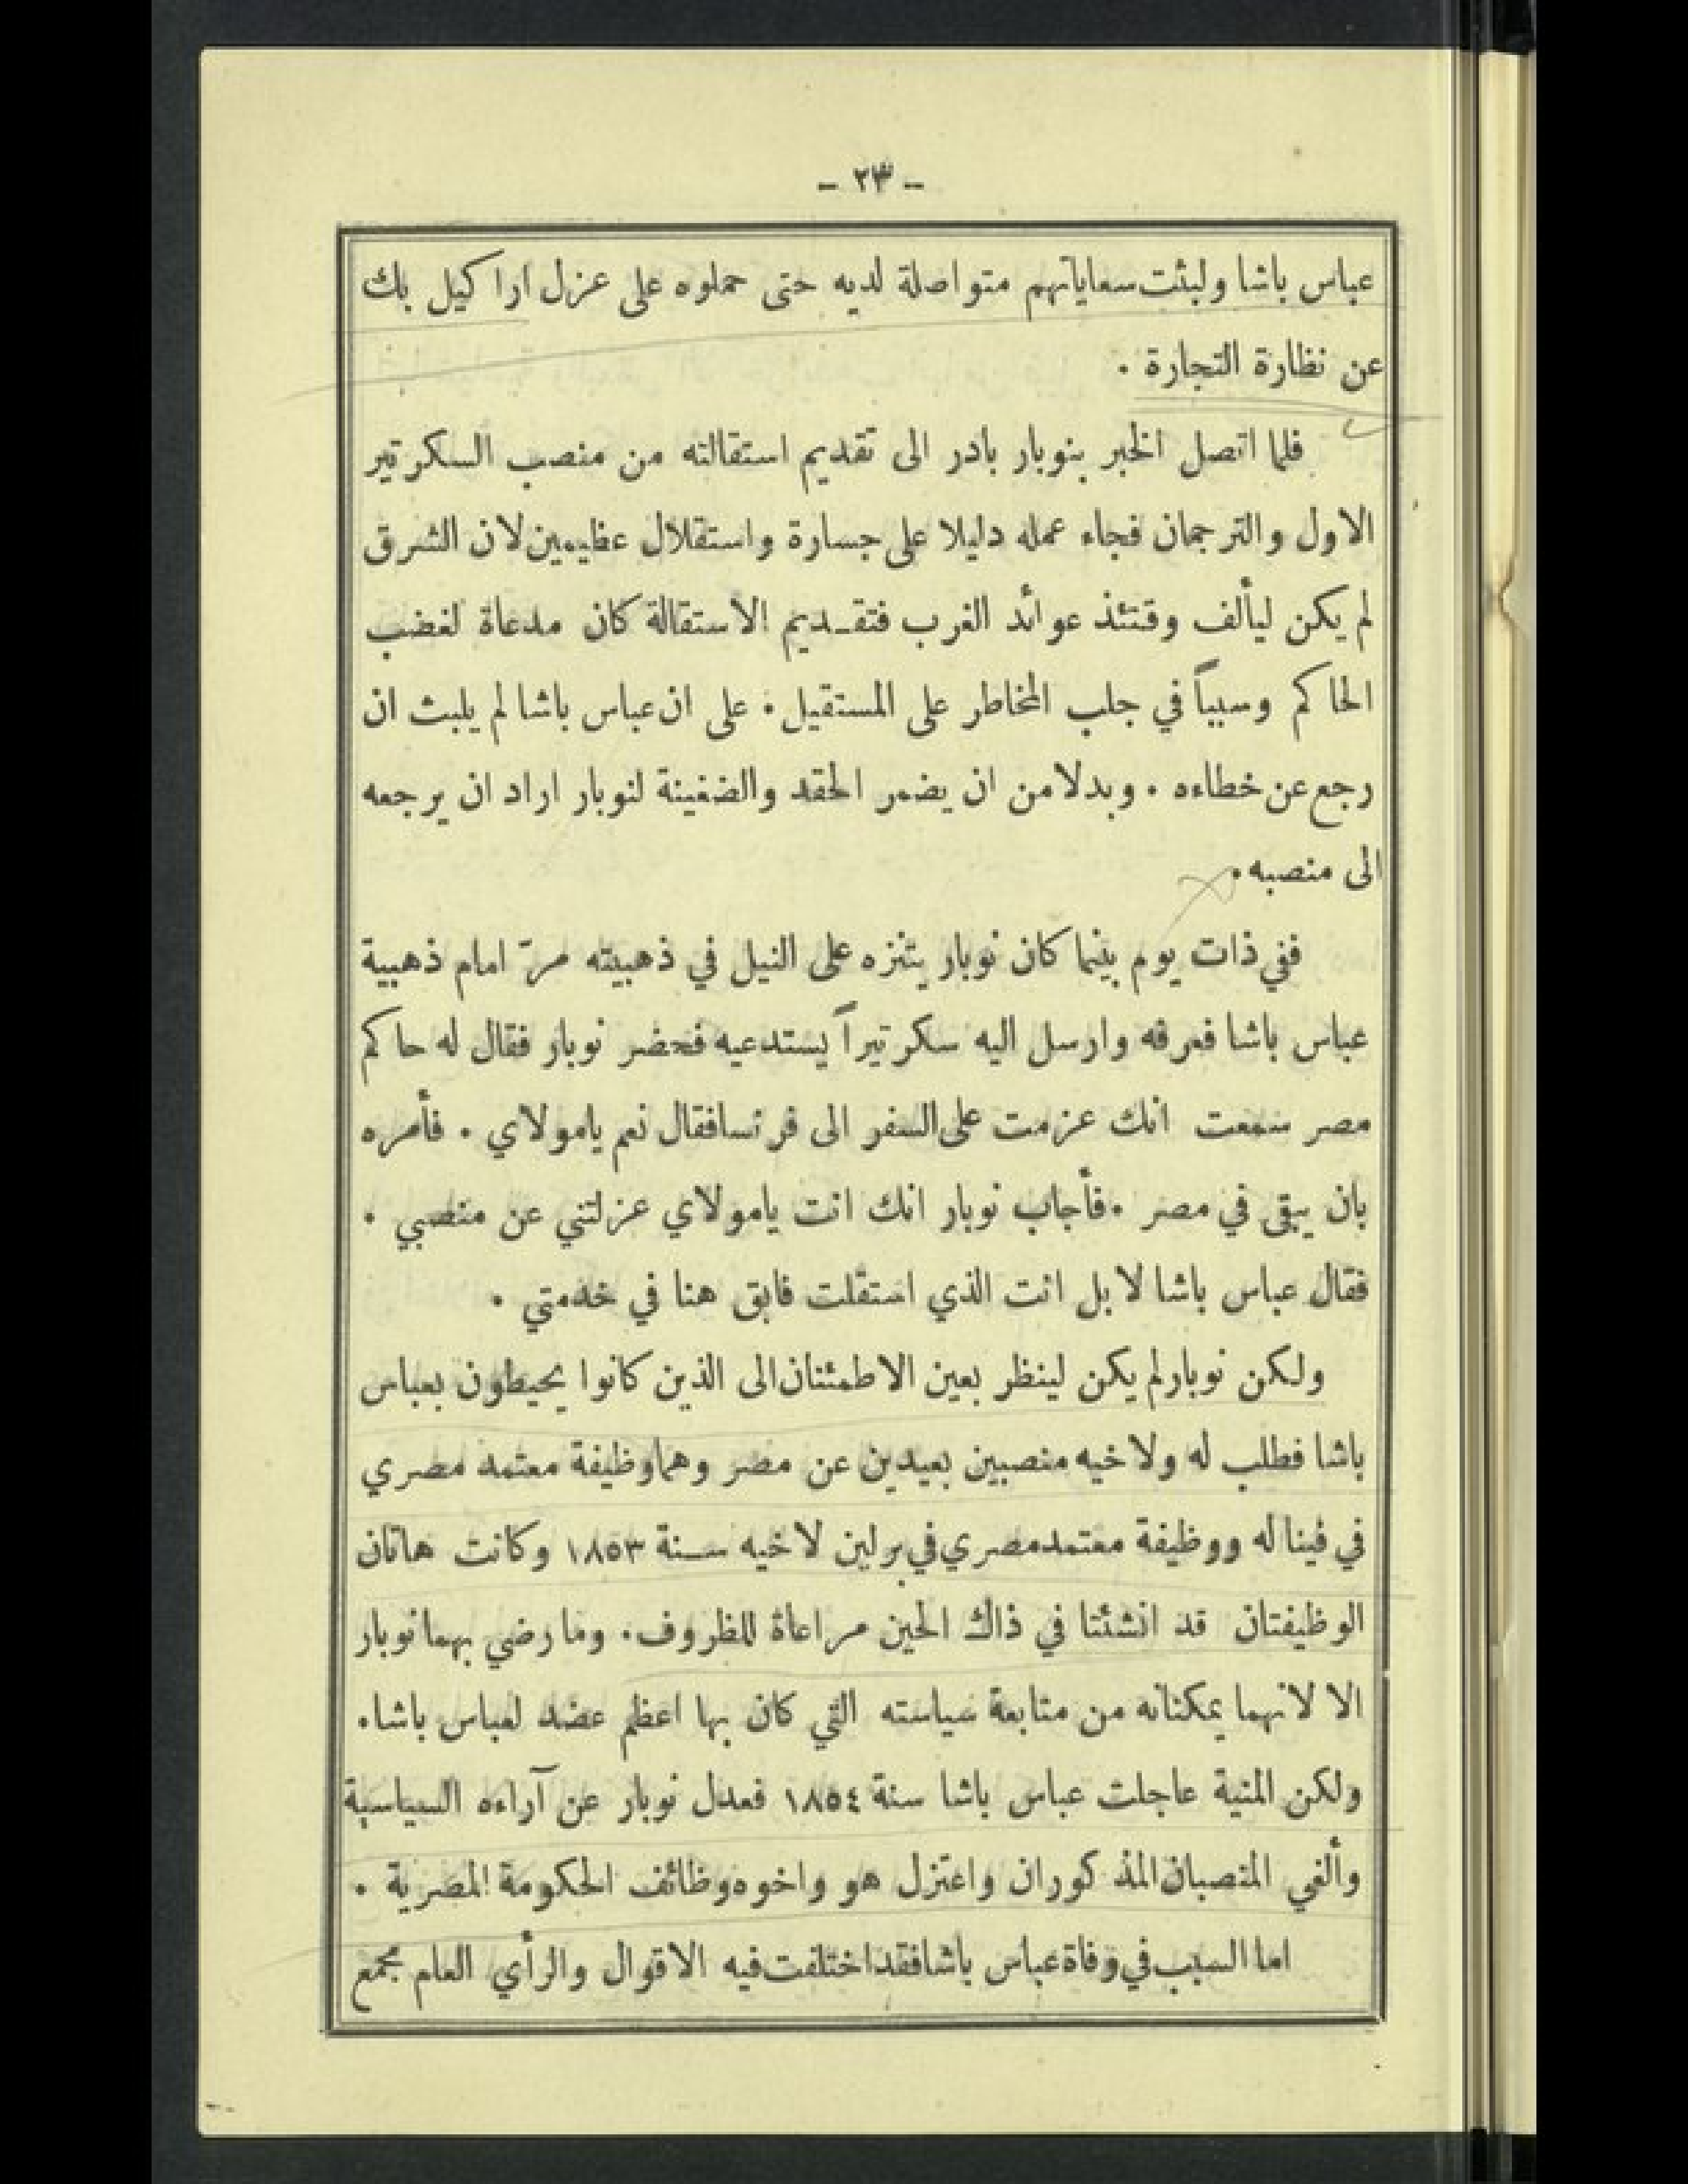 - ٢٣ -
عباس باشا ولبثت سعاياتهم متواصلة لديه حتى حملوه على عزل اراكيل بك
عن نظارة التجارة .
فلما اتصل الخبر بنوبار بادر الى تقديم استقالته من منصب السكرتير
الاول والترجمان فجاء عمله دليلا على جسارة واستقلال عظيمين لان الشرق
لم يكن ليألف وقتئذ عوائد الغرب فتقـديم الاستقالة كان مدعاة لغضب
الحاكم وسبباً في جلب المخاطر على المستقيل . على ان عباس باشا لم يلبث ان
رجع عن خطاءه . وبدلا من ان يضمر الحقد والضغينة لنوبار اراد ان يرجعه
الى منصبه .
ففي ذات يوم بينما كان نوبار يتنزه على النيل في ذهبيته مرّ امام ذهبية
عباس باشا فعرفه وارسل اليه سكرتيراً يستدعيه فحضر نوبار فقال له حاكم
مصر سمعت انك عزمت على السفر الى فرنسا فقال نعم يامولاي . فأمره
بان يبقى في مصر . فأجاب نوبار انك انت يامولاي عزلتني عن منصبي .
فقال عباس باشا لا بل انت الذي استقلت فابق هنا في خدمتي .
ولكن نوبار لم يكن لينظر بعين الاطمئنان الى الذين كانوا يحيطون بعباس
باشا فطلب له ولاخيه منصبين بعيدين عن مصر وهما وظيفة معتمد مصري
في فينا له ووظيفة معتمد مصري في برلين لاخيه سـنة ١٨٥٣ وكانت هاتان
الوظيفتان قد انشئتا في ذاك الحين مراعاة للظروف . وما رضي بهما نوبار
الا لانهما يمكنانه من متابعة سياسته التي كان بها اعظم عضد لعباس باشا .
ولكن المنية عاجلت عباس باشا سنة ١٨٥٤ فعدل نوبار عن آراءه السياسية
وألغي المنصبان المذكوران واعتزل هو واخوه وظائف الحكومة المصرية .
اما السبب في وفاة عباس باشا فقد اختلفت فيه الاقوال والرأي العام مجمع